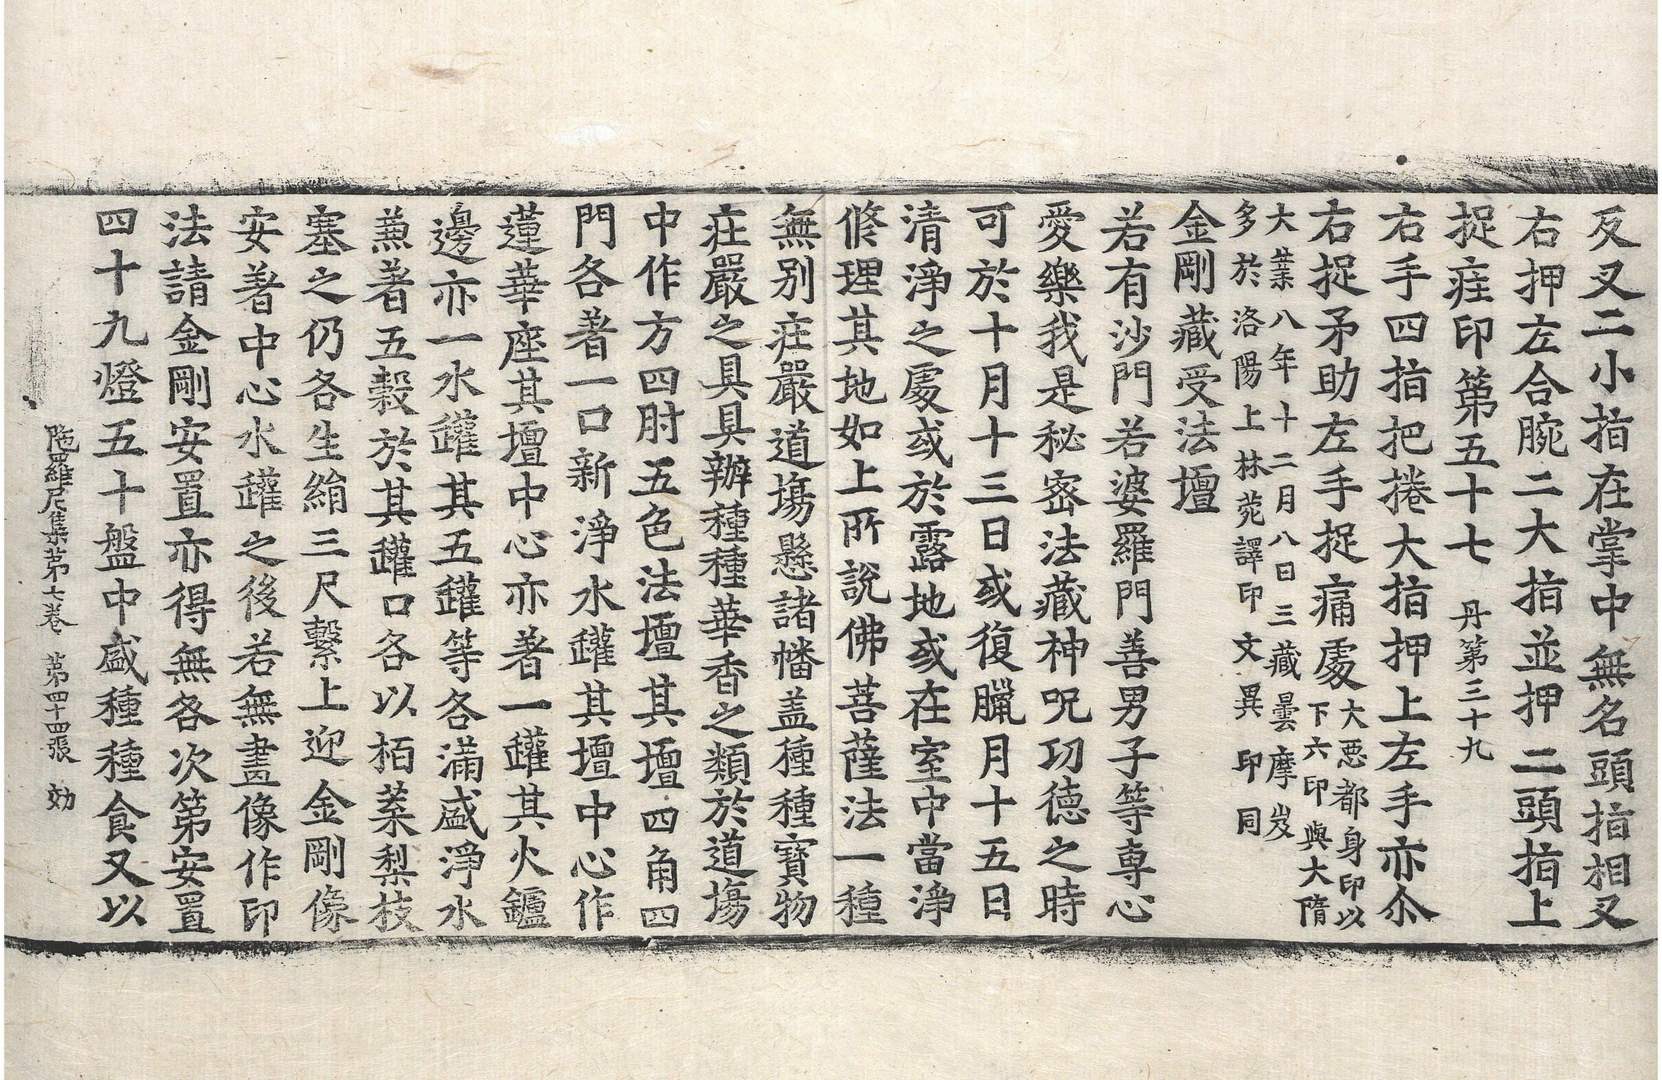 反叉二小指在掌中無名頭指相叉
右押左合腕二大指並押二頭指上
捉疰印第五十七 丹第三十九
右手四指把捲大指押上左手亦尒
右捉矛助左手捉痛處大惡都身印以
下六印與大隋
大業八年十二月八日三藏曇摩岌
多於洛陽上林菀譯印文異印同
金剛藏受法壇
若有沙門若婆羅門善男子等專心
愛樂我是秘密法藏神呪功德之時
可於十月十三日或復臘月十五日
清淨之處或於露地或在室中當淨
修理其地如上所說佛菩薩法一種
無別庄嚴道場懸諸幡盖種種寶物
庄嚴之具具辦種種華香之類於道場
中作方四肘五色法壇其壇四角四
門各著一口新淨水罐其壇中心作
蓮華座其壇中心亦著一罐其火鑪
邊亦一水罐其五罐等各滿盛淨水
兼著五穀於其罐口各以栢葉梨枝
塞之仍各生絹三尺繫上迎金剛像
安著中心水罐之後若無畫像作印
法請金剛安置亦得無咎次第安置
四十九燈五十盤中盛種種食又以
陁羅尼集第七卷 第四十四張 効